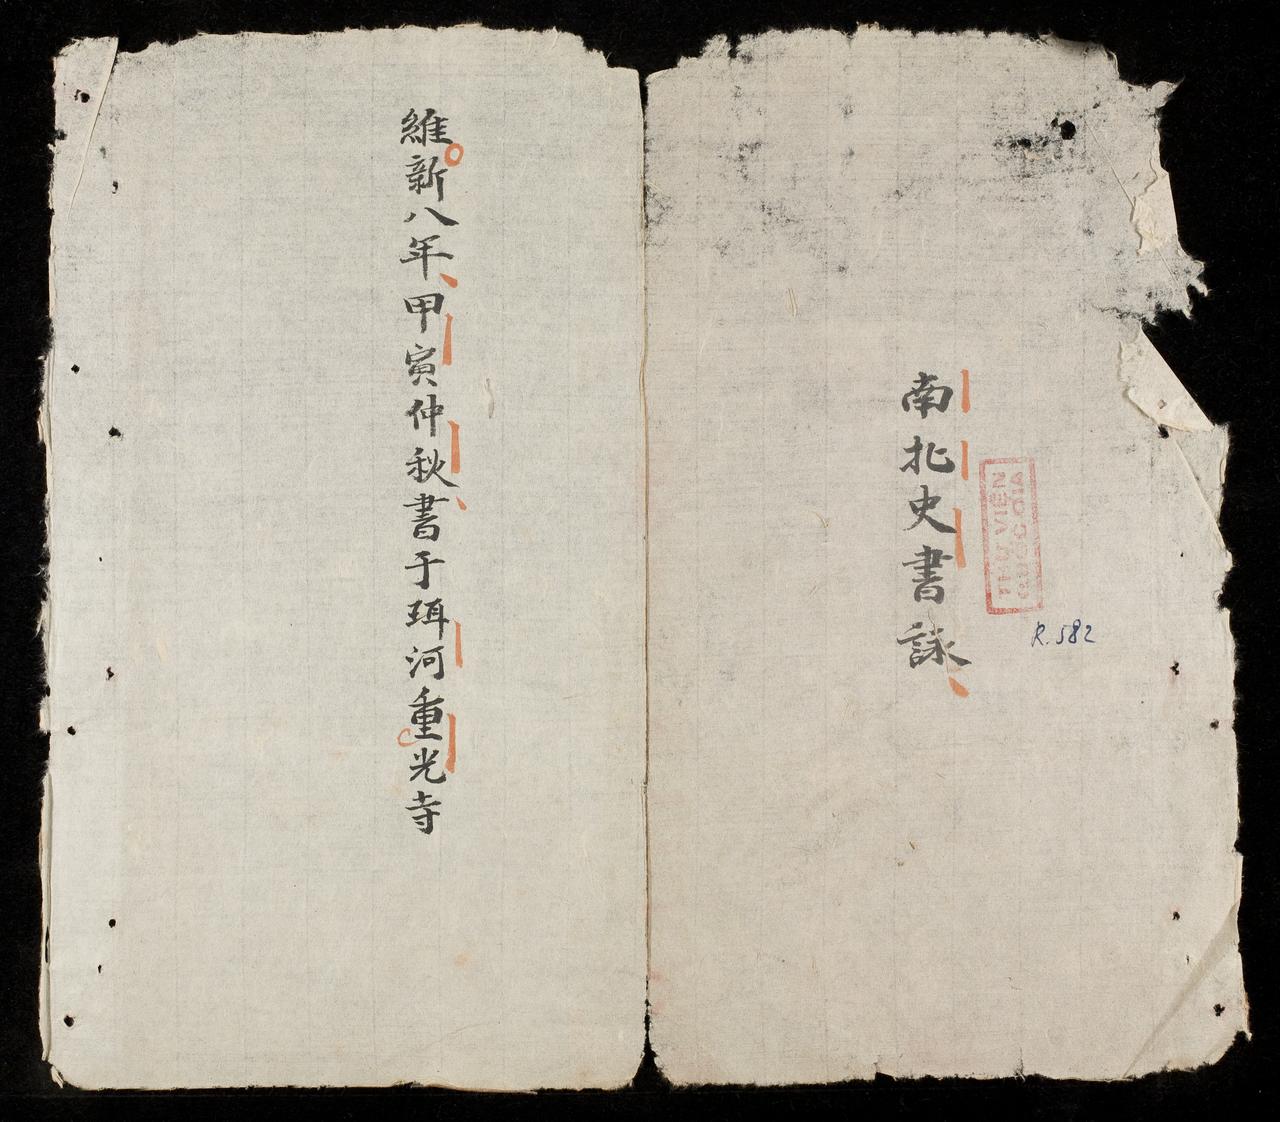 南北史書詠
THƯ VIỆN
QUỐC GIA
R.582
維新八年甲寅仲秋書于珥河重光寺